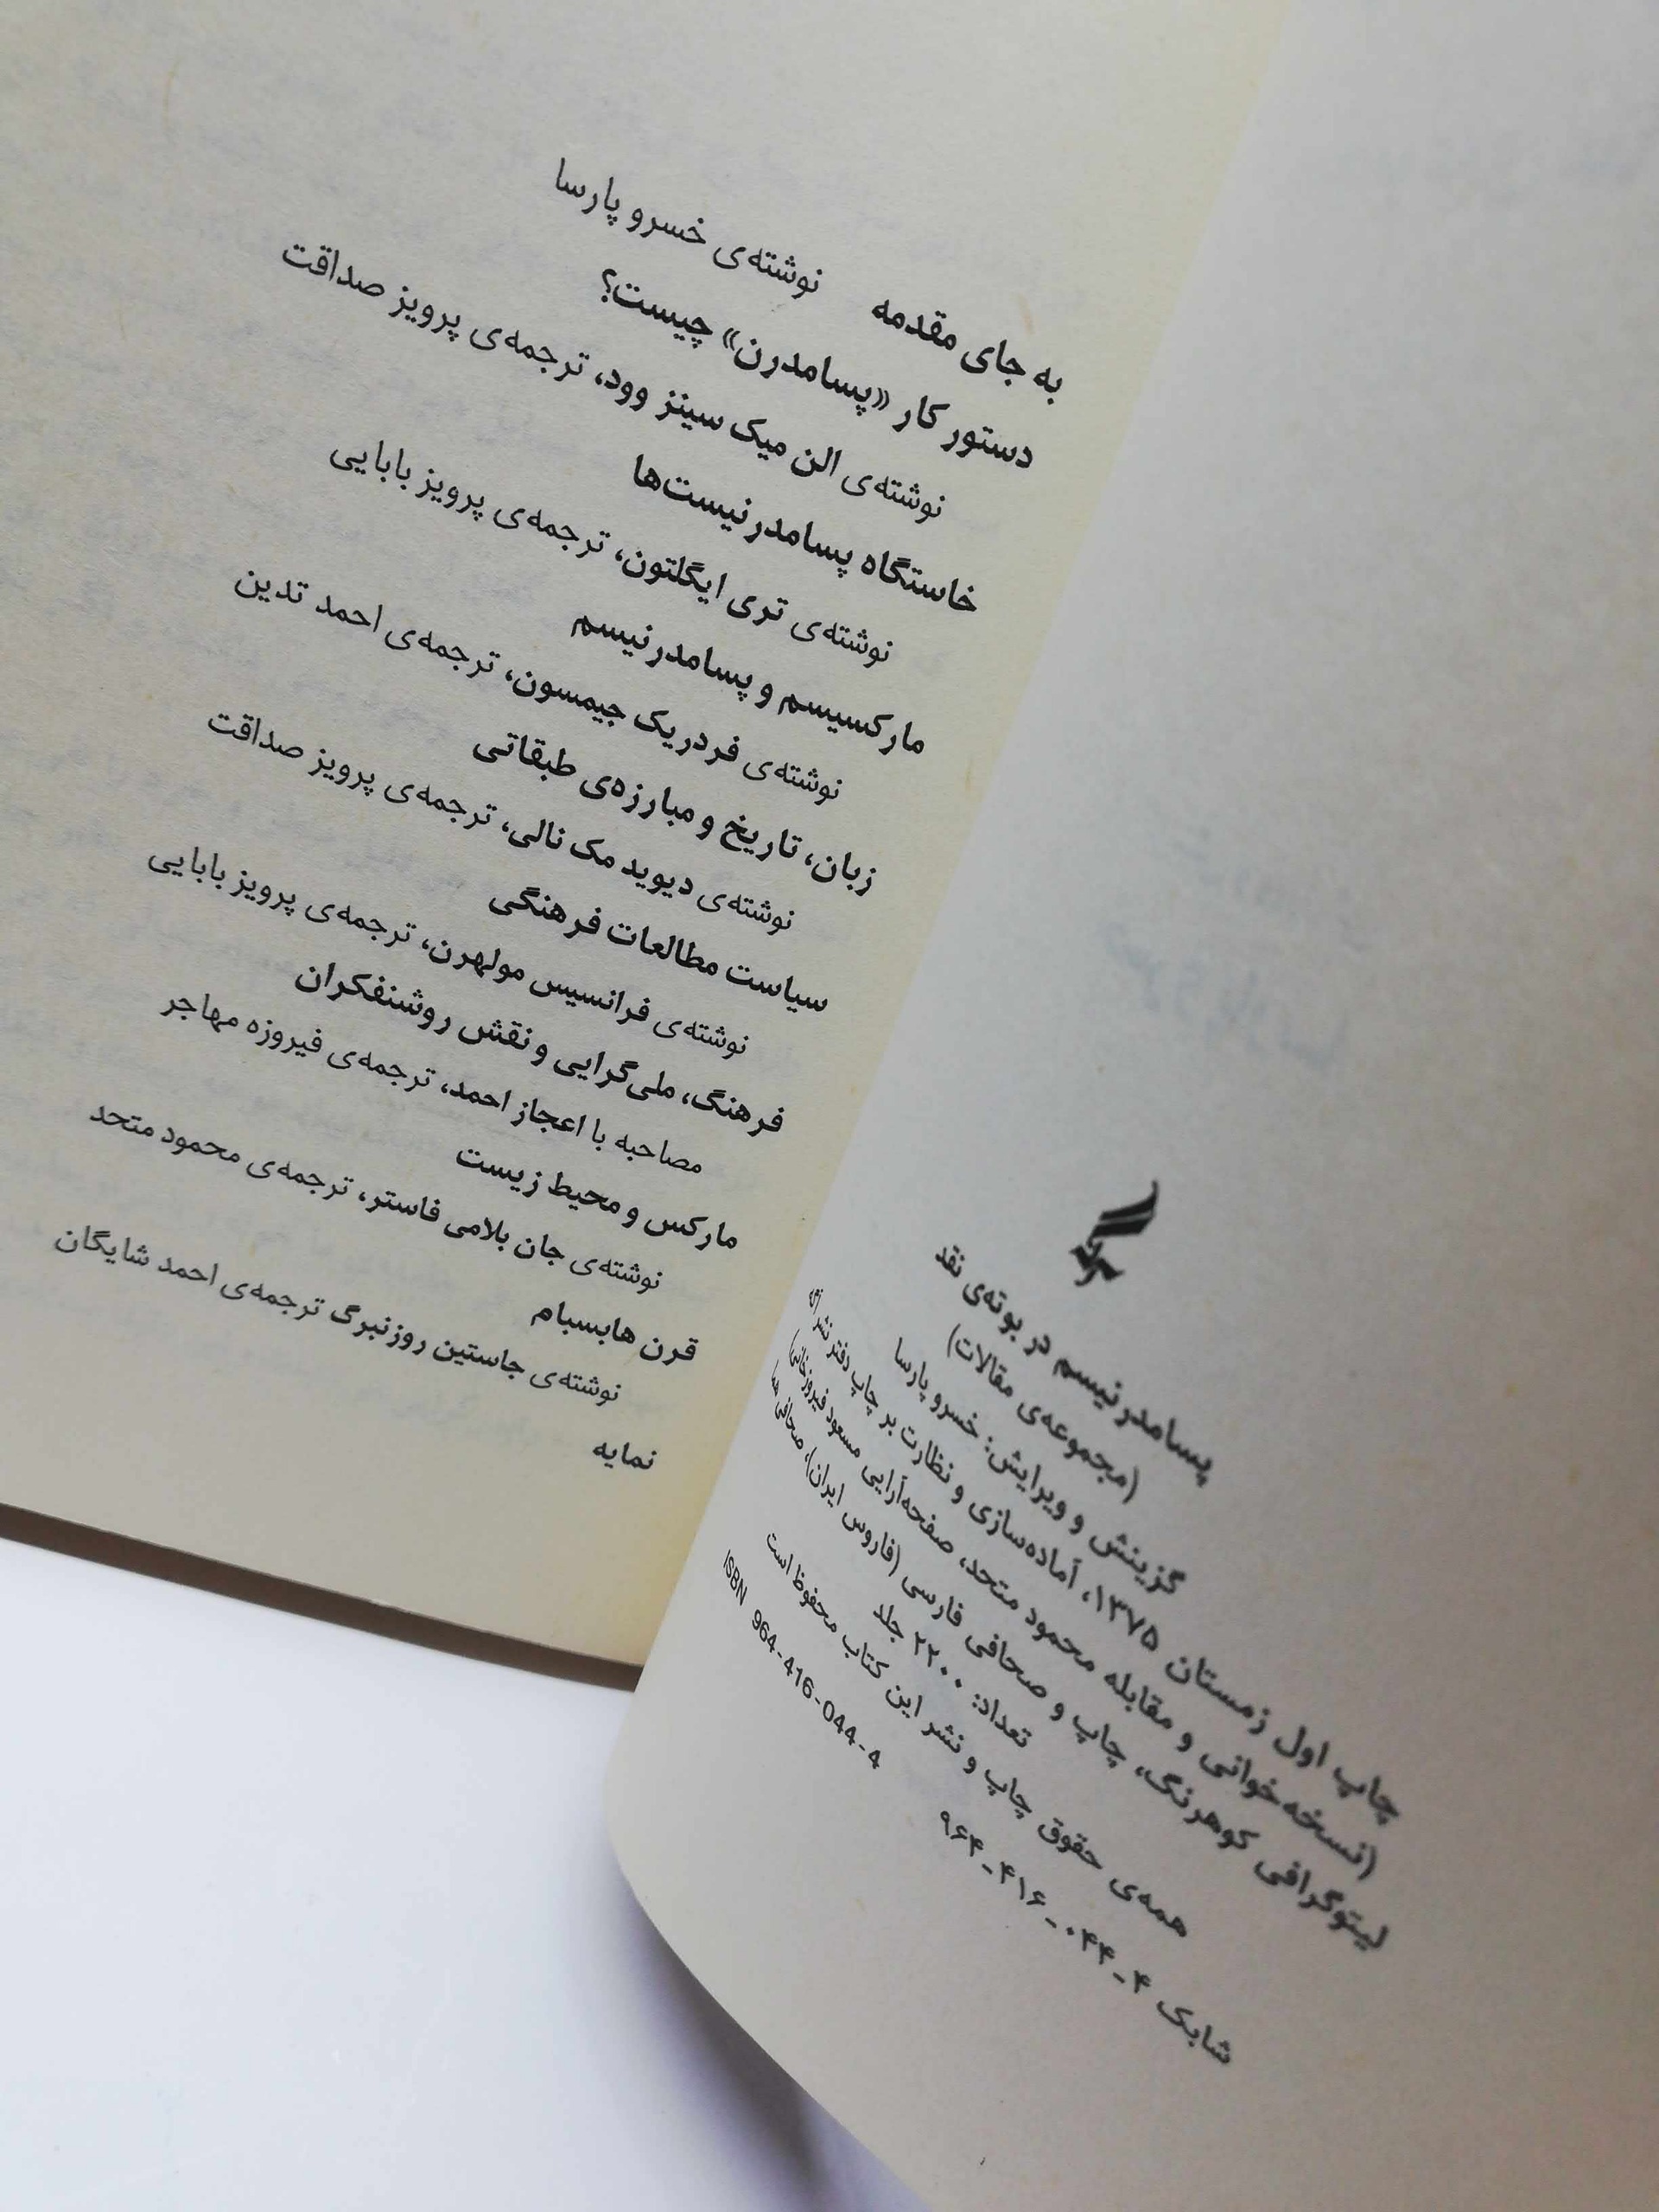 پسامدرنیسم در بوته‌ی نقد
(مجموعه‌ی مقالات)
گزینش و ویرایش: خسرو پارسا
چاپ اول زمستان ۱۳۷۵، آماده‌سازی و نظارت بر چاپ دفتر نشر آگه
(نسخه‌خوانی و مقابله محمود متحد، صفحه‌آرایی مسعود فیروزخانی)
لیتوگرافی کوهرنگ، چاپ و صحافی فارسی (فاروس ایران)، صحافی
تعداد: ۲۲۰۰ جلد
همه‌ی حقوق چاپ و نشر این کتاب محفوظ است
ISBN 964-416-044-4
شابک ۴_۰۴۴_۴۱۶_۹۶۴
به جای مقدمه نوشته‌ی خسرو پارسا
دستور کار «پسامدرن» چیست؟
نوشته‌ی الن میک سینز وود، ترجمه‌ی پرویز صداقت
خاستگاه پسامدرنیست‌ها
نوشته‌ی تری ایگلتون، ترجمه‌ی پرویز بابایی
مارکسیسم و پسامدرنیسم
نوشته‌ی فردریک جیمسون، ترجمه‌ی احمد تدین
زبان، تاریخ و مبارزه‌ی طبقاتی
نوشته‌ی دیوید مک نالی، ترجمه‌ی پرویز صداقت
سیاست مطالعات فرهنگی
نوشته‌ی فرانسیس مولهرن، ترجمه‌ی پرویز بابایی
فرهنگ، ملی‌گرایی و نقش روشنفکران
مصاحبه با اعجاز احمد، ترجمه‌ی فیروزه مهاجر
مارکس و محیط زیست
نوشته‌ی جان بلامی فاستر، ترجمه‌ی محمود متحد
قرن هابسبام
نوشته‌ی جاستین روزنبرگ ترجمه‌ی احمد شایگان
نمایه